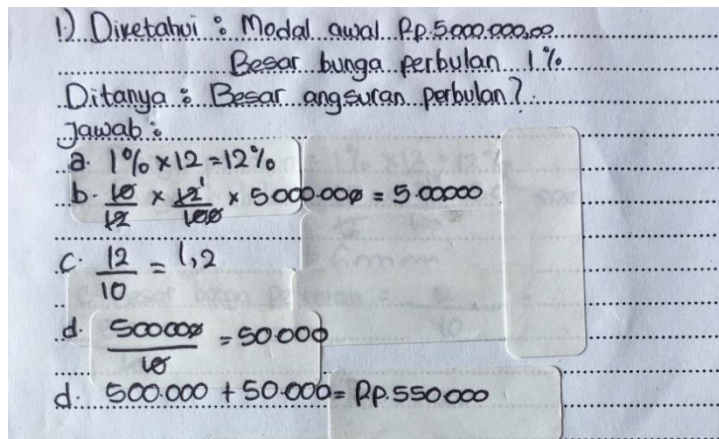 1.) Diketahui : Modal awal Rp.5.000.000,00
Besar bunga perbulan 1%
Ditanya : Besar angsuran perbulan?
Jawab :
a. 1% × 12 = 12%
b. 10/12 × 12¹/100 × 5000.000 = 5.00000
c. 12/10 = 1,2
d. 500000/10 = 50.000
d. 500.000 + 50.000 = Rp.550000